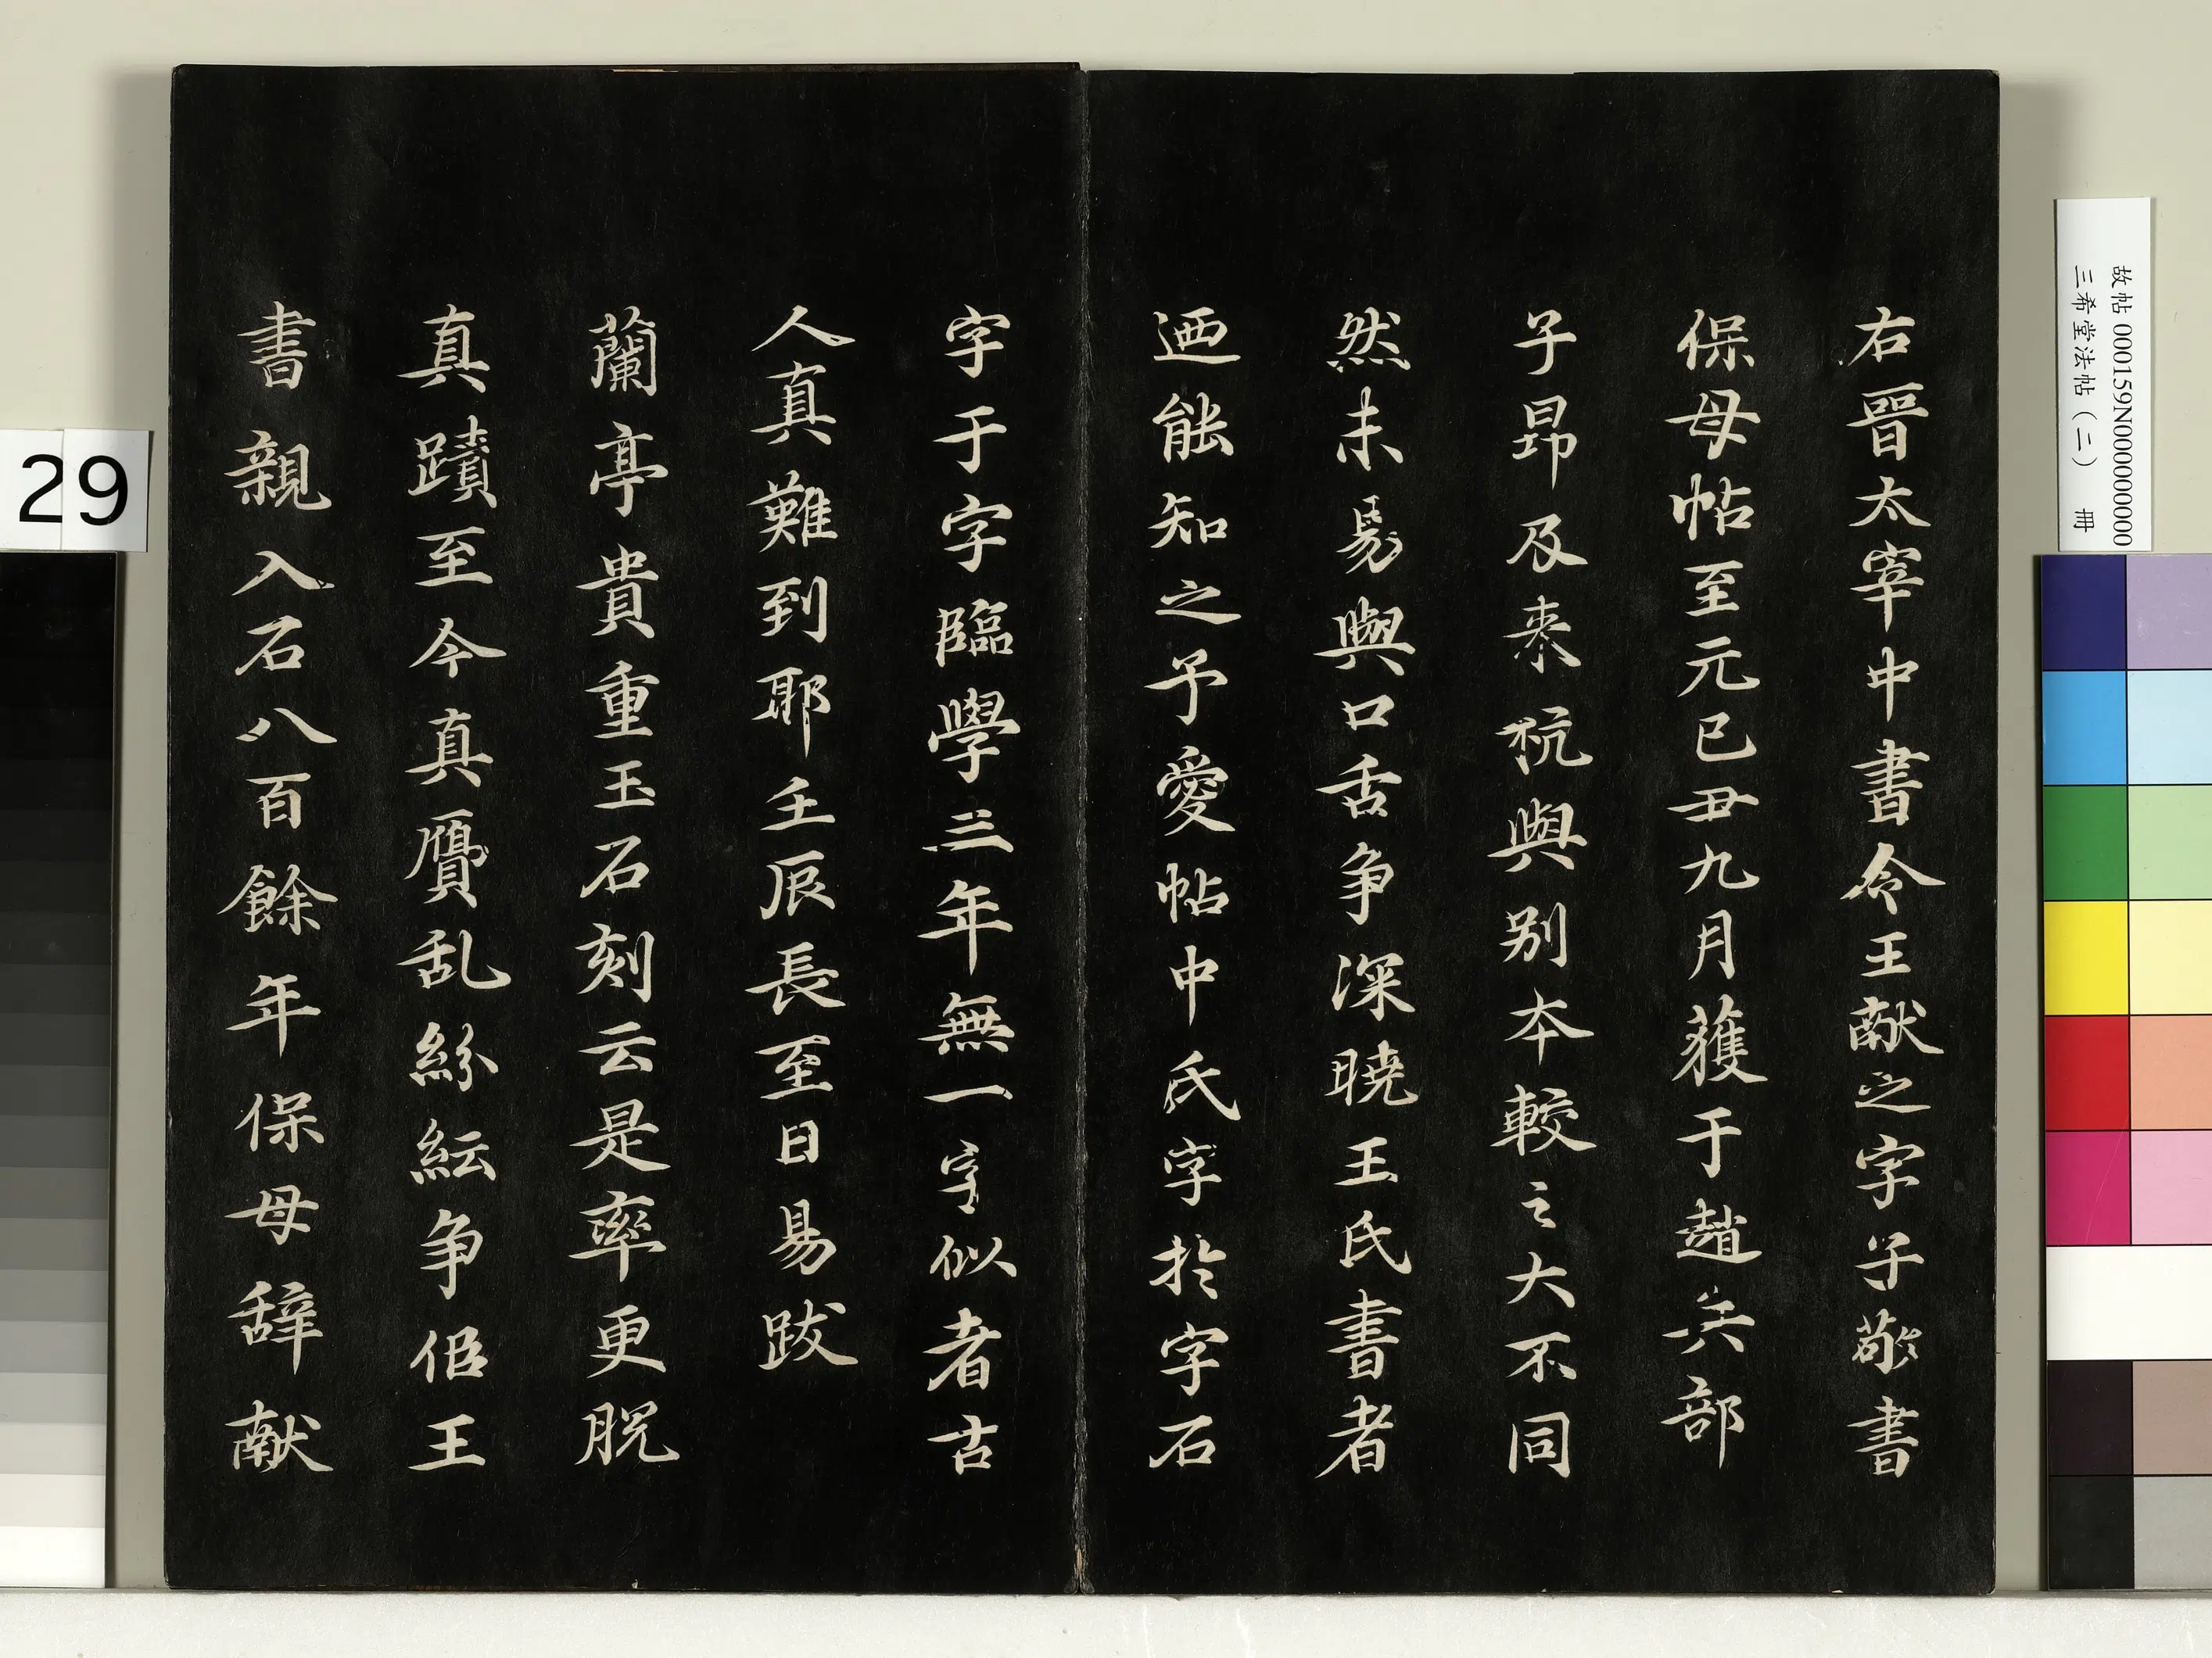 右晉太宰中書令王献之字子敬書
保母帖至元已丑九月獲于趙兵部
子昂及来杭與别本較之大不同
然未易與口舌争深曉王氏書者
迺能知之予愛帖中氏字於字石
字于字臨學三年無一字似者古
人真難到耶壬辰長至日易跋
蘭亭貴重玉石刻云是率更脱
真蹟至今真贗乱紛紜争佀王
書親入石八百餘年保母辞献
故帖 000159N000000000
三希堂法帖(二) 冊
29